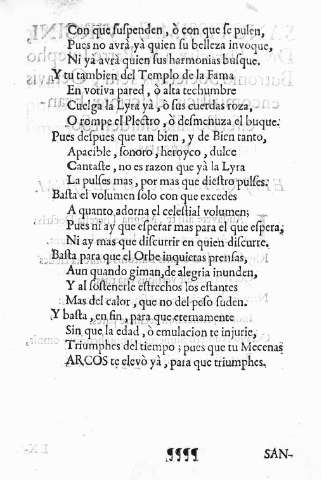 Con que suspenden, ò con que se pulen,
Pues no avrà yà quien su belleza invoque,
Ni yà avrà quien sus harmonias busque.
Y tu tambien del Templo de la Fama
En votiva pared, ò alta techumbre
Cuelga la Lyra yà, ò sus cuerdas roza,
O rompe el Plectro, ò desmenuza el buque.
Pues despues que tan bien, y de Bien tanto,
Apacible, sonoro, heroyco, dulce
Cantaste, no es razon que yà la Lyra
La pulses mas, por mas que diestro pulses.
Basta el volumen solo con que excedes
A quanto adorna el celestial volumen;
Pues ni ay que esperar mas para el que espera,
Ni ay mas que discurrir en quien discurre.
Basta para que el Orbe inquieras prensas,
Aun quando giman, de alegria inunden,
Y al sostenerle estrechos los estantes
Mas del calor, que no del peso suden.
Y basta, en fin, para que eternamente
Sin que la edad, ò emulacion te injurie,
Triumphes del tiempo; pues que tu Mecenas
ARCOS te elevò yà, para que triumphes.
¶¶¶¶ SAN-